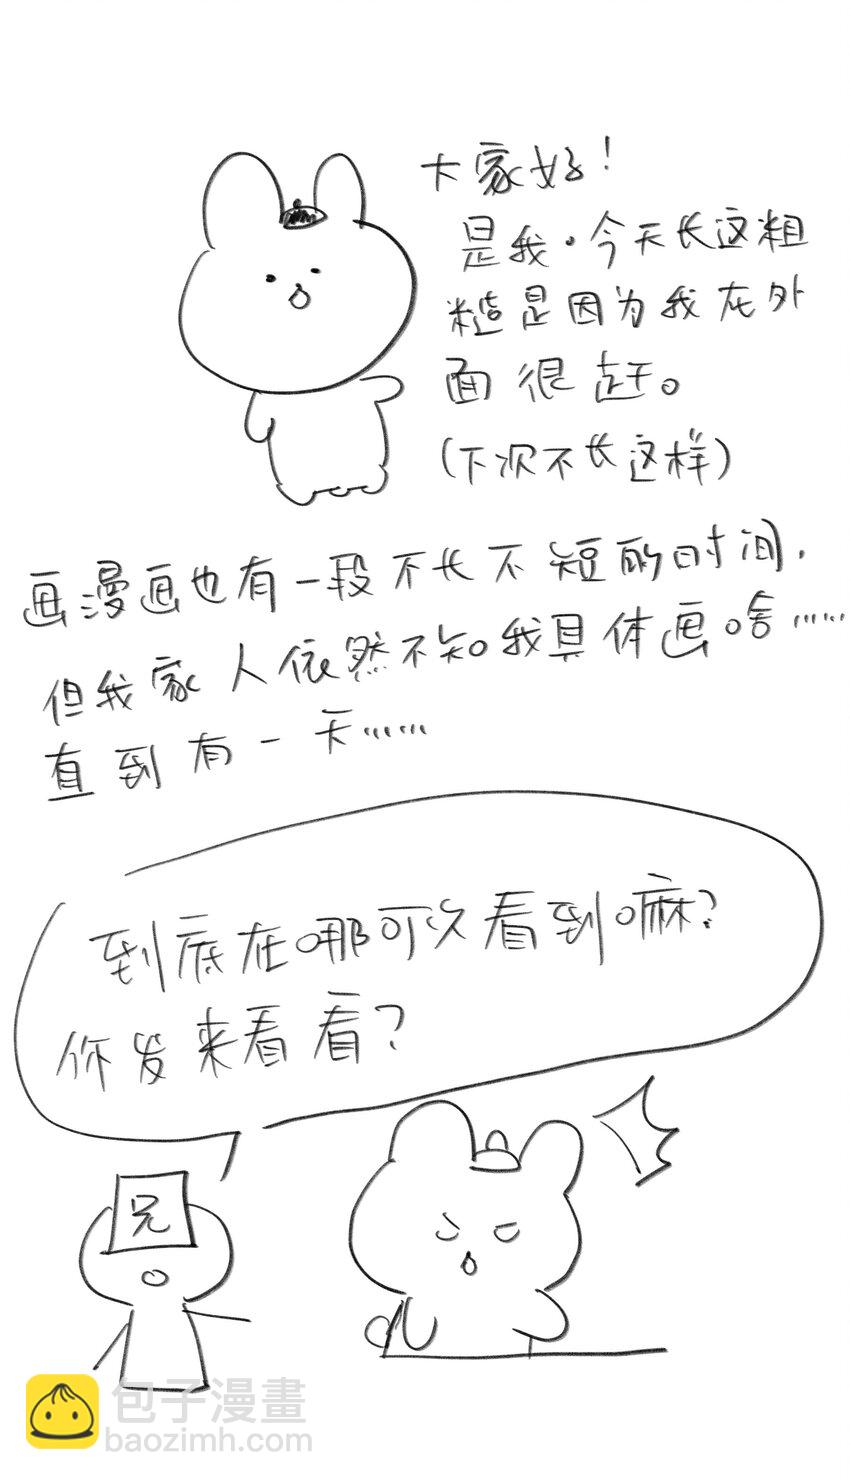 大家好！
是我。今天长这粗
糙是因为我在外
面很赶。
（下次不长这样）
画漫画也有一段不长不短的时间，
但我家人依然不知我具体画啥……
直到有一天……
到底在哪可以看到嘛？
你发来看看？
兄
包子漫畫
baozimh.com